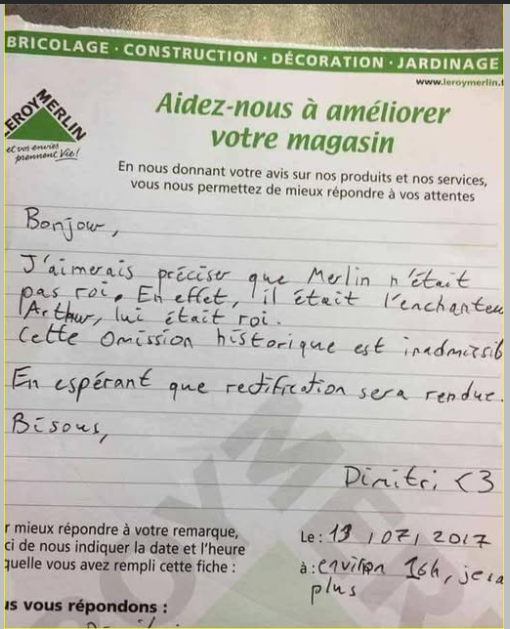 BRICOLAGE · CONSTRUCTION · DÉCORATION · JARDINAGE
www.leroymerlin.f
LEROY MERLIN
et vos envies
prennent Vie!
Aidez-nous à améliorer
votre magasin
En nous donnant votre avis sur nos produits et nos services,
vous nous permettez de mieux répondre à vos attentes
Bonjour,
J'aimerais préciser que Merlin n'était
pas roi. En effet, il était l'enchanteu
Arthur, lui était roi.
Cette omission historique est inadmissib
En espérant que rectification sera rendue.
Bisous,
Dimitri <3
r mieux répondre à votre remarque,
ci de nous indiquer la date et l'heure
quelle vous avez rempli cette fiche :
Le : 19 / 07 / 2017
à : environ 16h, je sa
plus
us vous répondons :